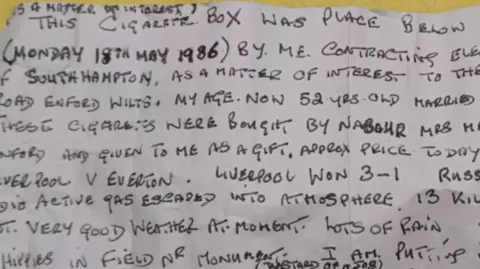 IS A MATTER OF INTEREST)
THIS CIGARETE BOX WAS PLACE BELOW
(MONDAY 18TH MAY 1986) BY. ME. CONTRACTING ELE
F SOUTHAMPTON. AS A MATTER OF INTEREST TO THE
ROAD ENFORD WILTS. MY AGE. NOW 52 YRS. OLD MARRIED
THESE CIGARETS WERE BOUGHT BY NABOUR MRS M
NFORD AND GIVEN TO ME AS A GIFT. APPROX PRICE TODAY
LIVERPOOL V EVERTON. LIVERPOOL WON 3-1 RUSS
DIO ACTIVE GAS ESCAPED INTO ATMOSPHERE. 13 KIL
VERY GOOD WEATHER AT. MOMENT. LOTS OF RAIN
HIPPIES IN FIELD NR MONUMENT. I AM PUTTING
(BASTARD OF A JOB)